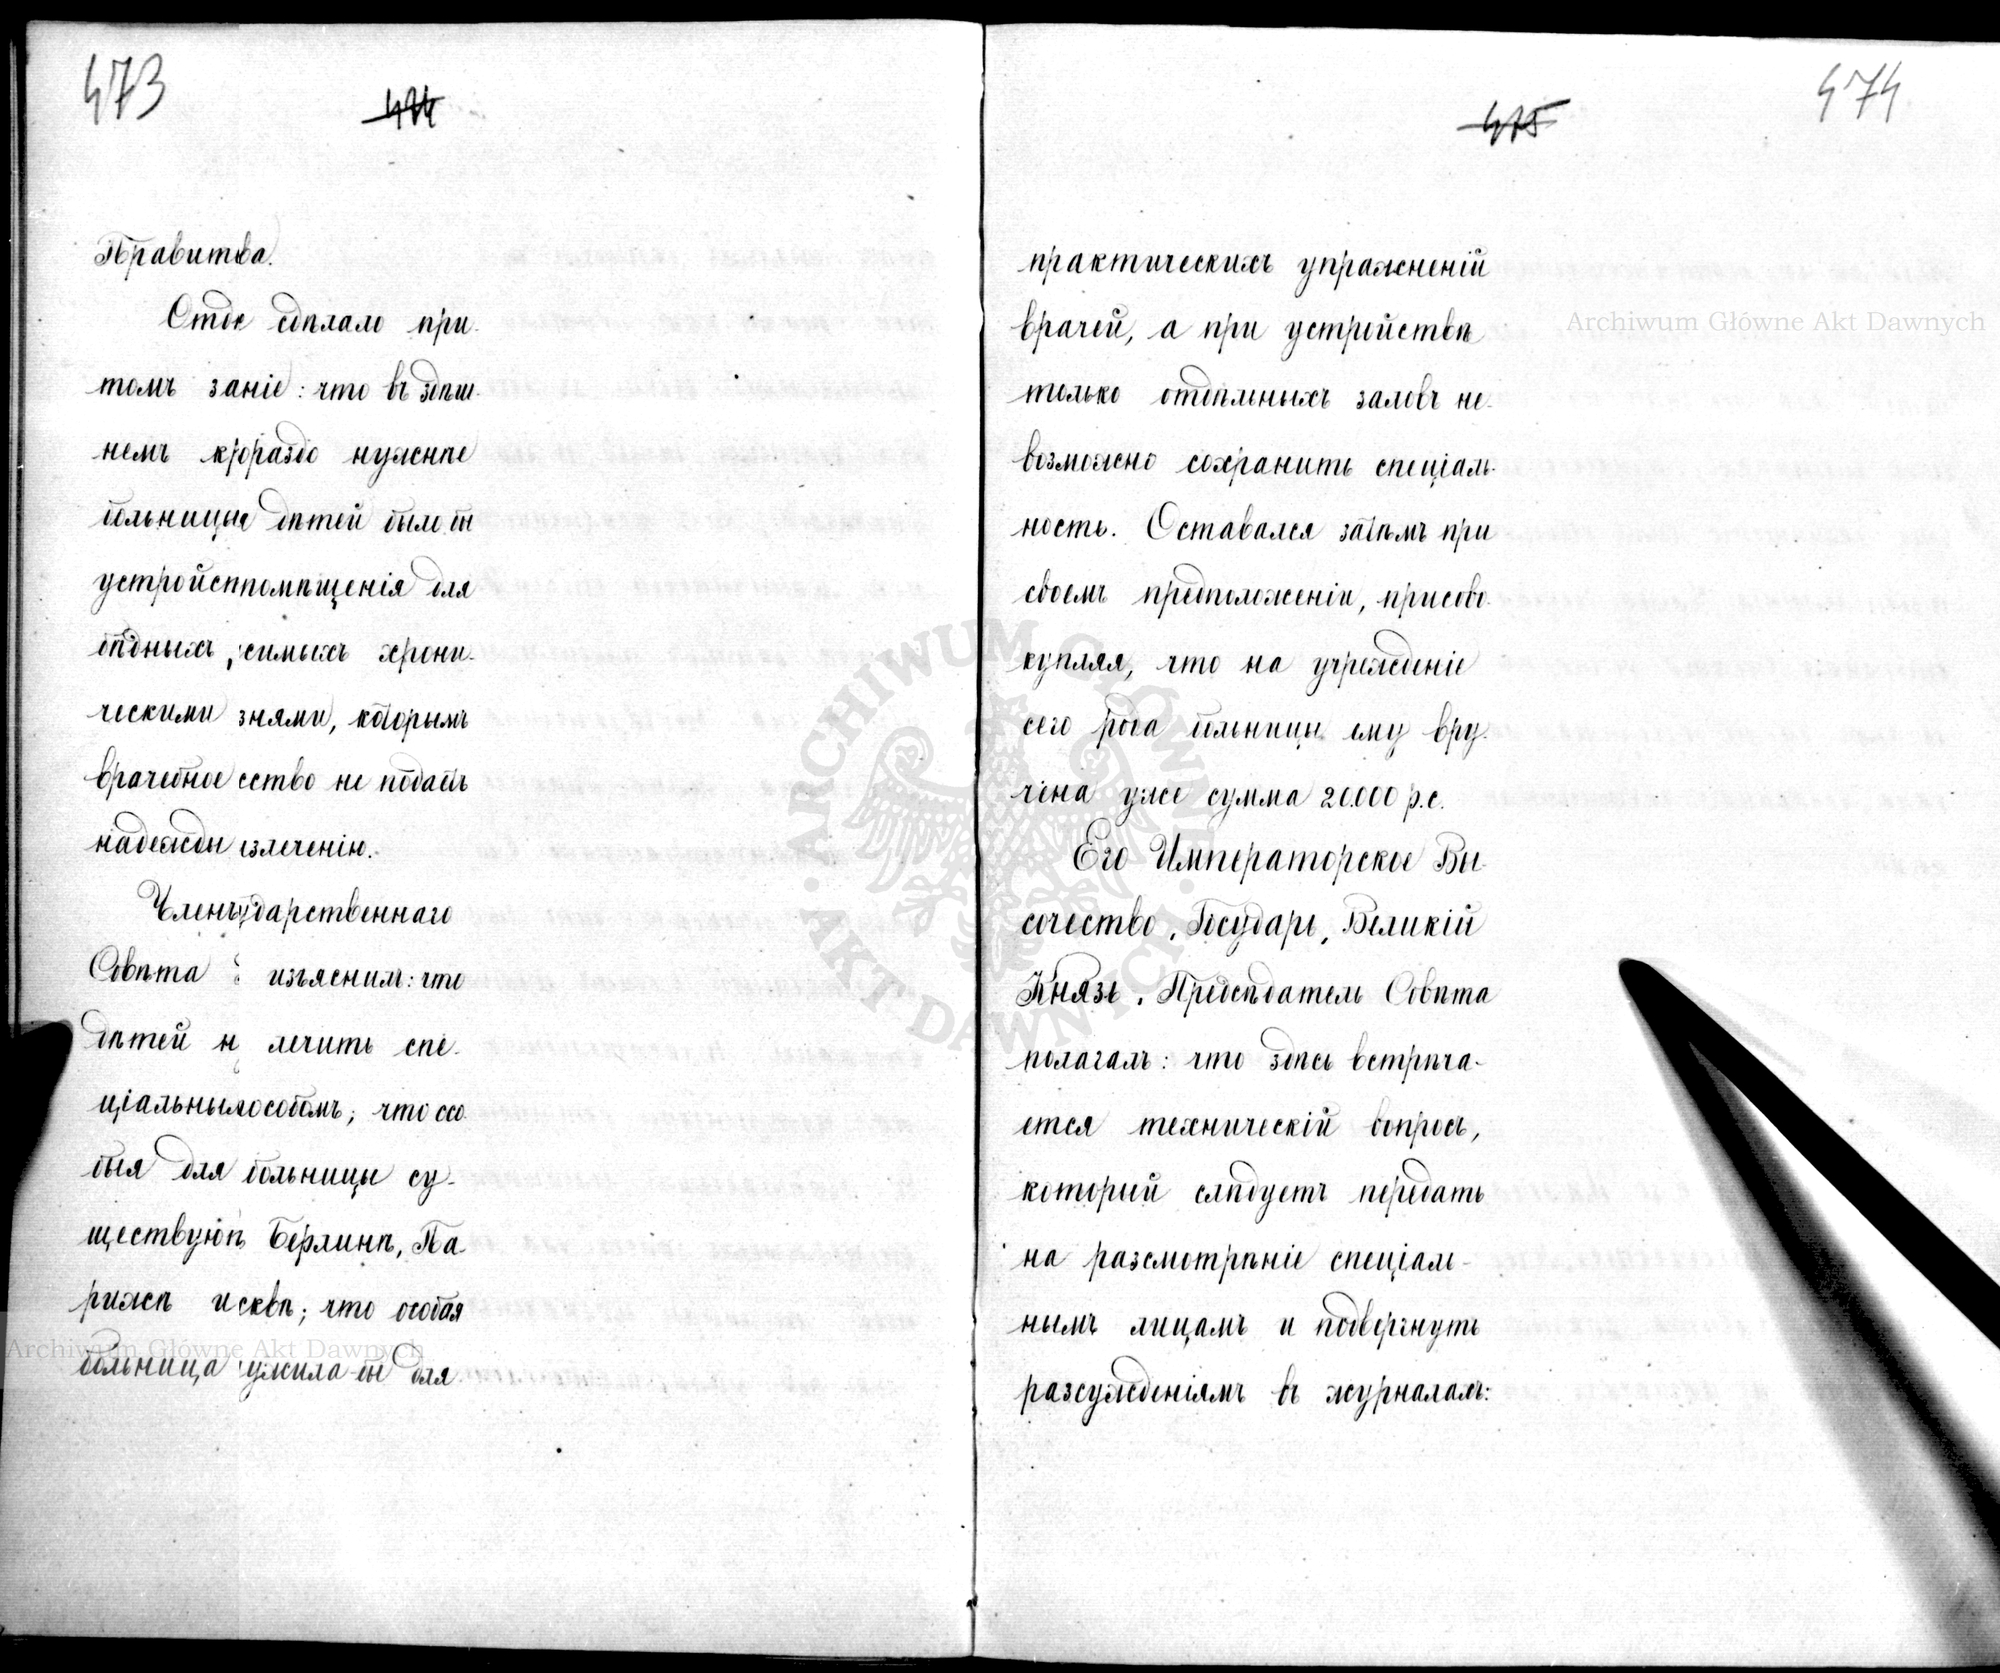 473
474
Правитва.
Отде сдѣлало при-
томъ заніе: что въ здѣш-
немъ крораздо нужнѣе
больницы дѣтей было бы
устройсппомѣщенія для
бѣдныхъ, симыхъ хрони-
ческими знями, которымъ
врачебное сство не подаетъ
надежды излеченію.
Членъударственнаго
Совѣта изъяснилъ: что
дѣтей н лечить спе-
ціальнылособомъ; что осо
быя для больницы су-
ществуютъ Берлинѣ, Па-
рижѣ и сквѣ; что особая
больница ужила бы для
474
475
практическихъ упражненій
врачей, а при устройствѣ
только отдѣльныхъ заловъ не-
возможно сохранить спеціаль-
ность. Оставался затѣмъ при
своемъ предположеніи, присово-
купляя, что на учрежденіе
сего рода больницы ему вру-
чена уже сумма 20.000 р.с.
Его Императорское Вы-
сочество, Государь, Великій
Князь, Предсѣдатель Совѣта
полагалъ: что здѣсь встрѣча-
ется техническій вопросъ,
который слѣдуетъ передать
на разсмотрѣніе спеціаль-
нымъ лицамъ и подвергнуть
разсужденіямъ въ журналахъ:
Archiwum Główne Akt Dawnych
Archiwum Główne Akt Dawnych
ARCHIWUM GŁÓWNE AKT DAWNYCH